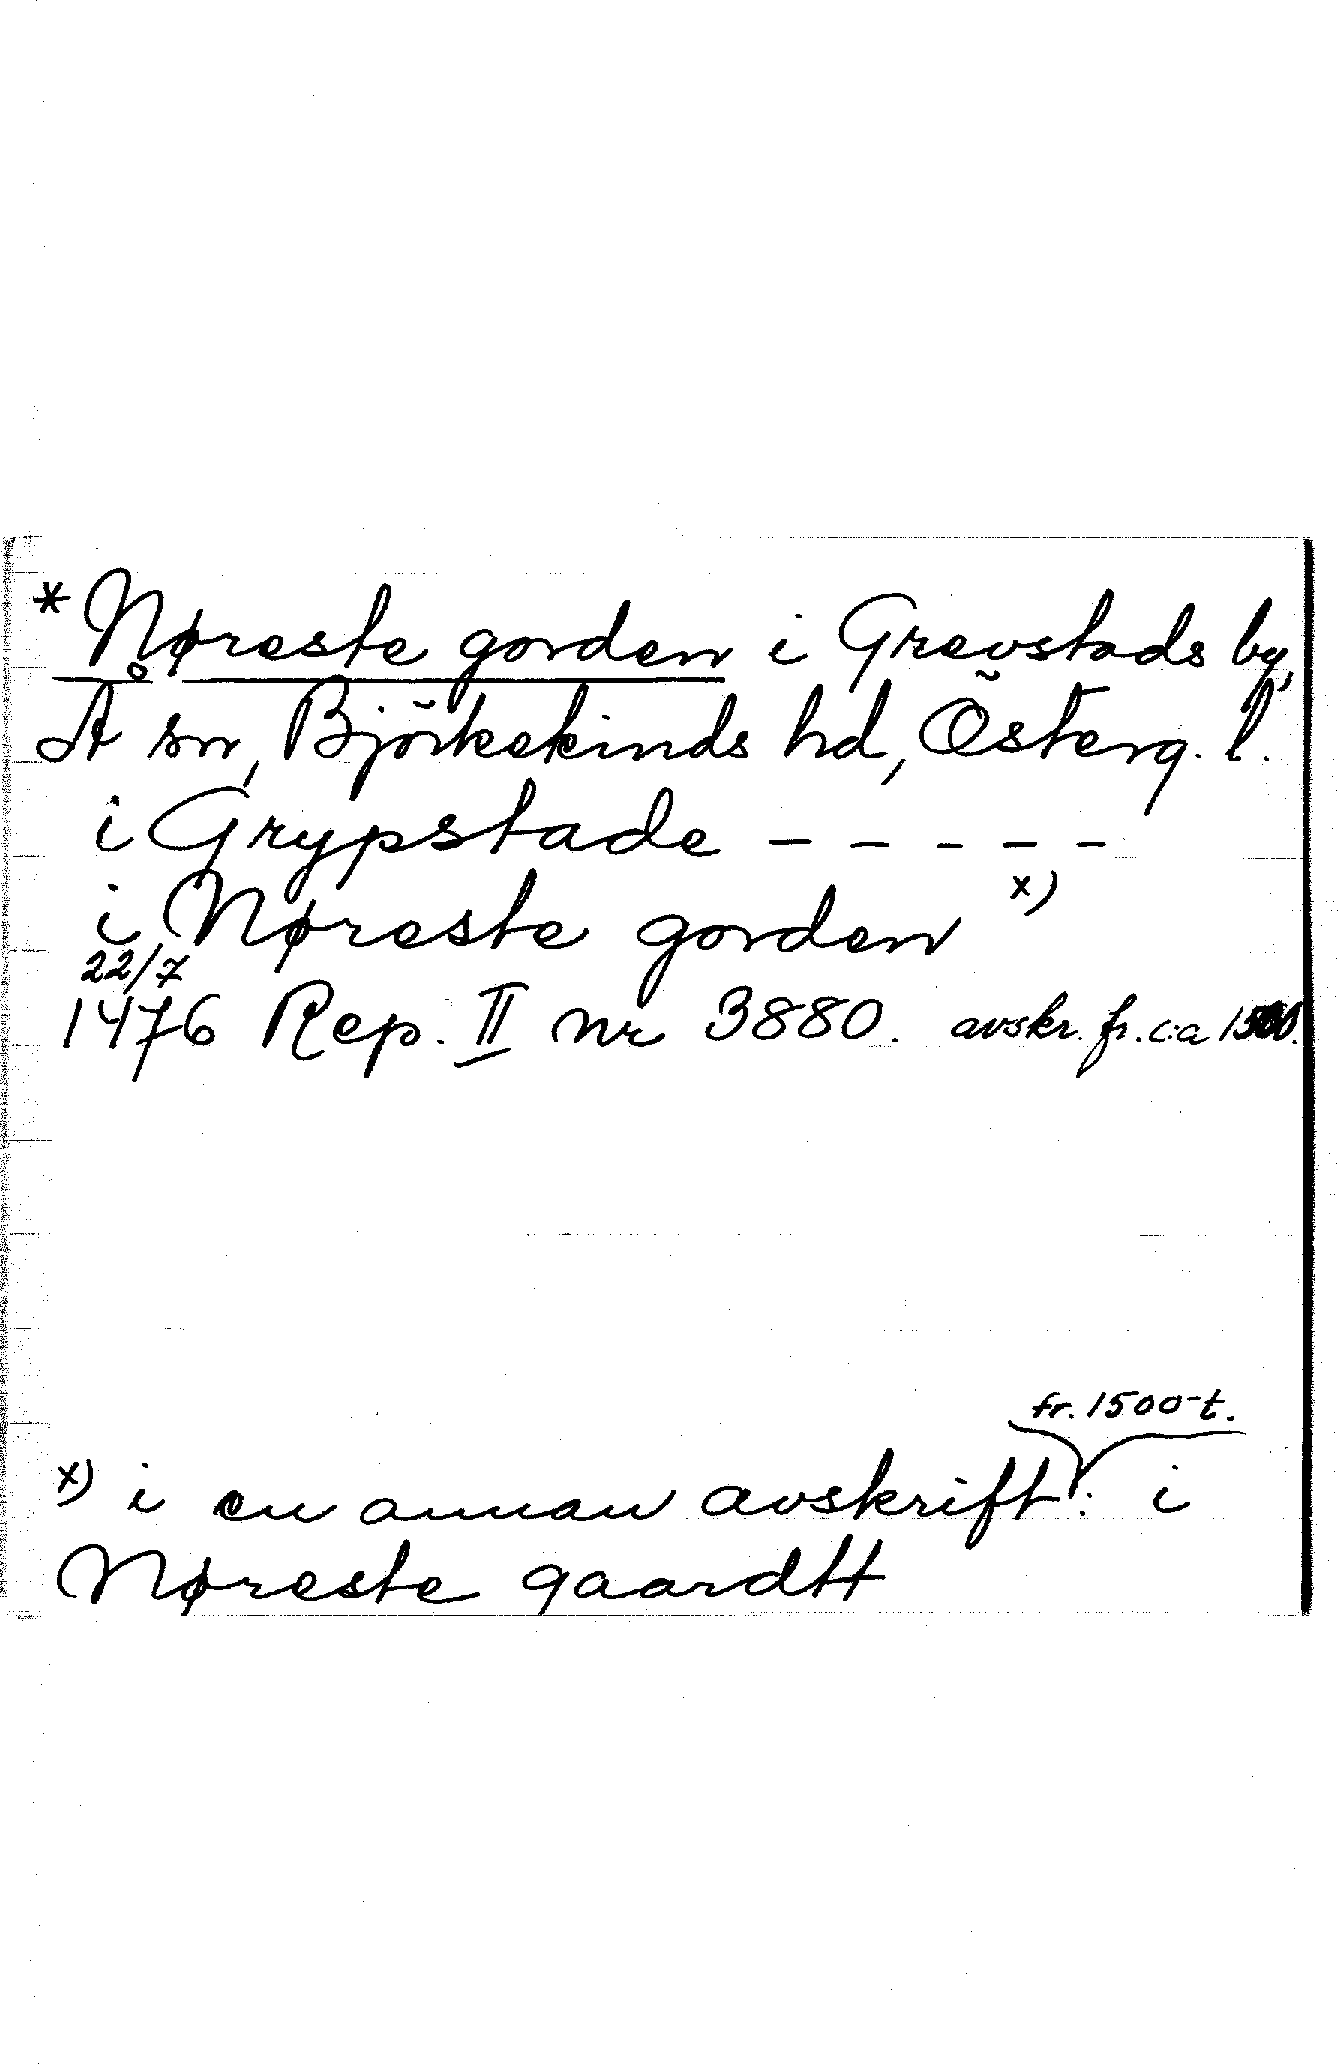 * Nøreste gorden i Grevstads by,
Å sn, Björkekinds hd, Österg. l.
i Grypstade – – – – –
i Nøreste gorden x)
22/7
1476 Rep. II nr 3880. avskr. fr. c:a 1500.
fr. 1500-t.
x) i en annan avskrift: i
Nøreste gaardtt